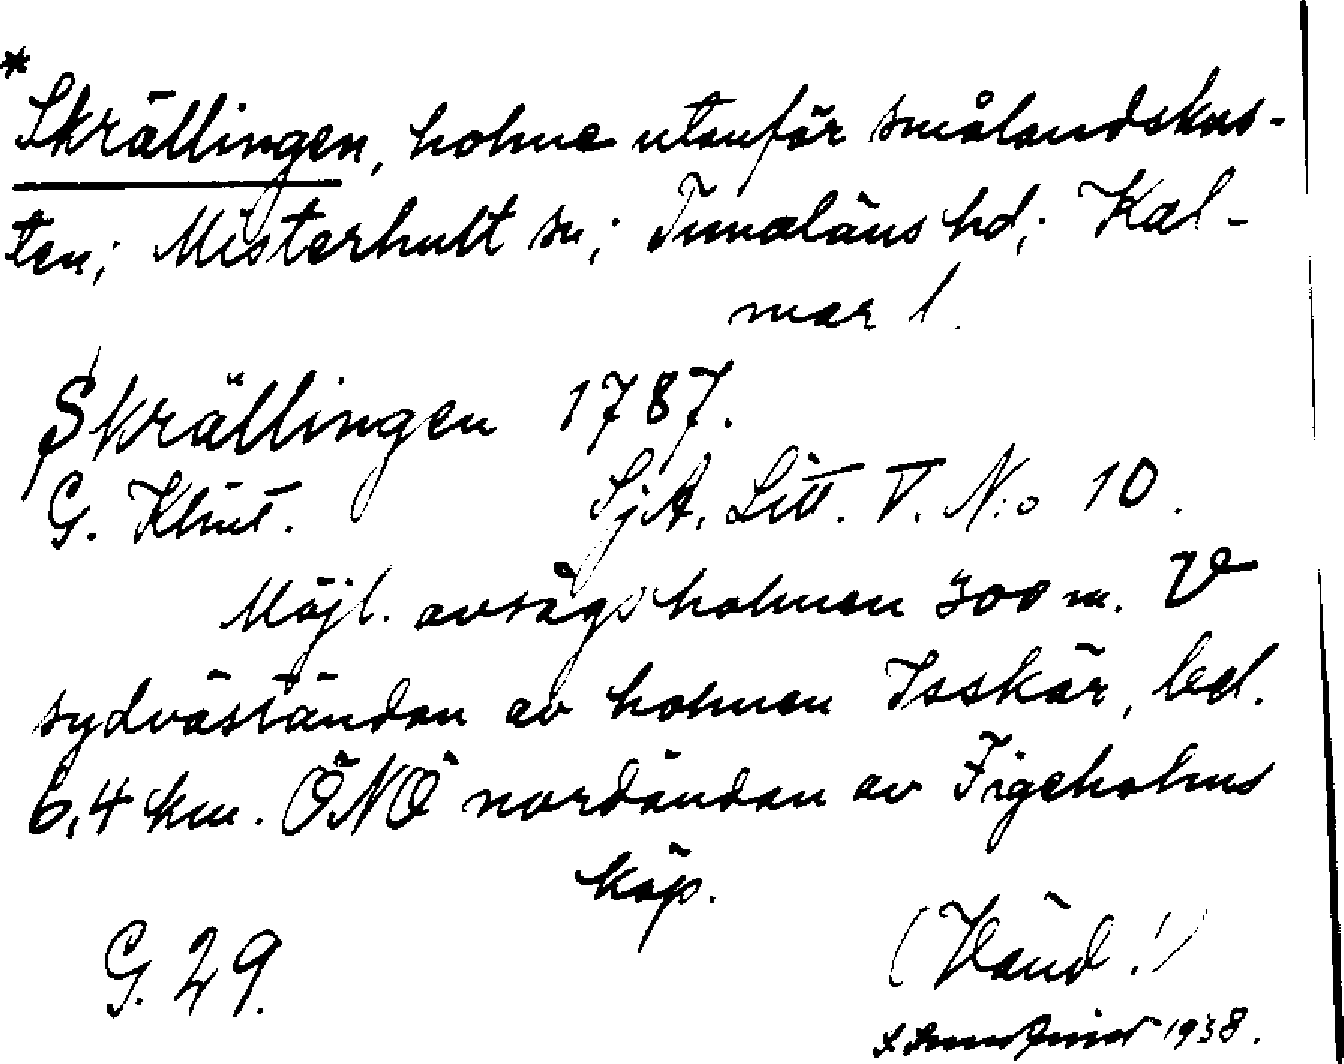 *
Skrällingen, holme utanför smålandskus-
ten; Misterhult sn; Tunaläns hd; Kal-
mar l.
Skrällingen 1787.
G. Klint. SjA. Litt. V. N:o 10.
Möjl. avsågs holmen 300 m. V
sydväständan av holmen Isskär, bel.
6,4 km. ÖNÖ nordändan av Figeholms
köp.
G. 29.
(Vänd!)
1938.